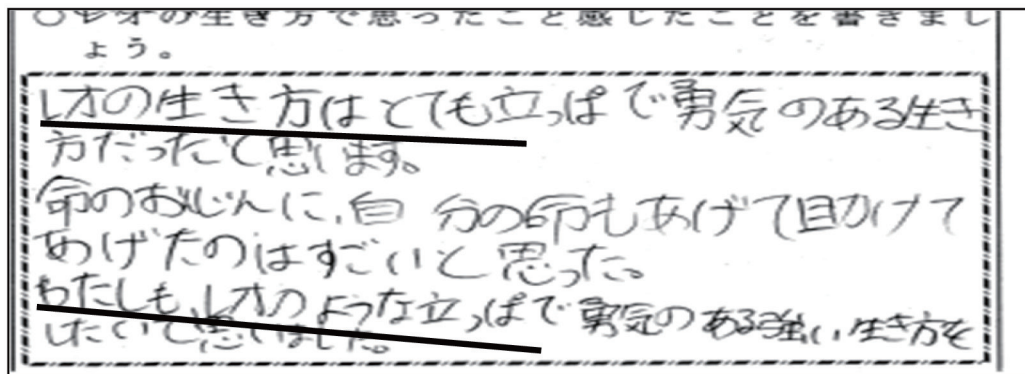 ○レオの生き方で思ったこと感じたことを書きまし
ょう。
レオの生き方はとても立っぱで勇気のある生き
方だったと思います。
命のおんじんに、自分の命もあげて助けて
あげたのはすごいと思った。
わたしも、レオのような立っぱで勇気のある強い生き方を
したいと思いました。